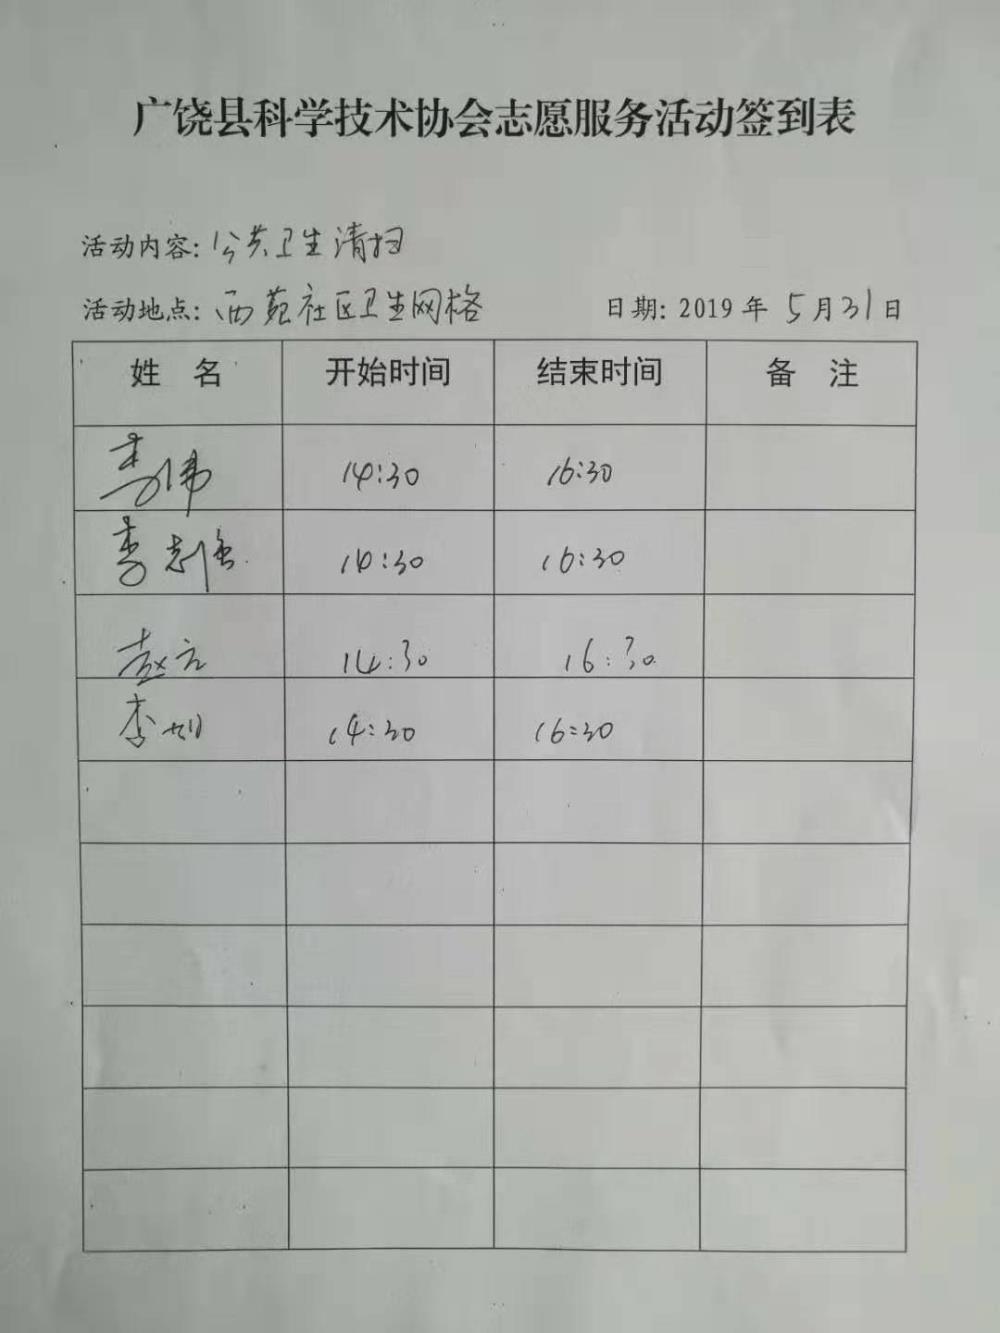 广饶县科学技术协会志愿服务活动签到表
活动内容: 公共卫生清扫
活动地点: 西苑社区卫生网格 日期: 2019 年 5 月 31 日
姓 名 开始时间 结束时间 备 注
李伟 14:30 16:30
李志强 14:30 16:30
赵元 14:30 16:30
李旭 14:30 16:30